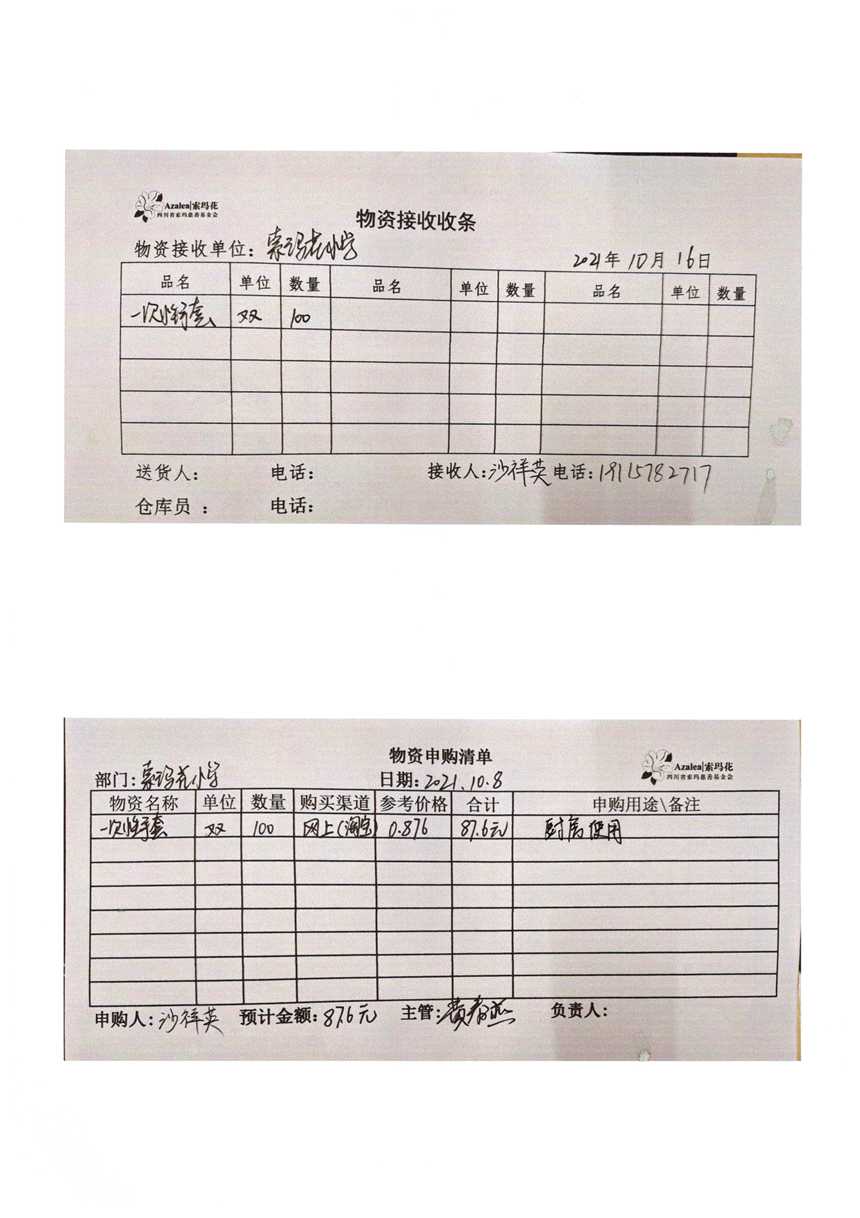 Azalea|索玛花
四川省索玛慈善基金会
物资接收收条
物资接收单位：索玛花小学 2021年10月16日
品名 单位 数量 品名 单位 数量 品名 单位 数量
一次性手套 双 100
送货人： 电话： 接收人：沙祥英 电话：19115782717
仓库员 ： 电话：
物资申购清单
Azalea|索玛花
四川省索玛慈善基金会
部门：索玛花小学 日期：2021.10.8
物资名称 单位 数量 购买渠道 参考价格 合计 申购用途\备注
一次性手套 双 100 网上(淘宝) 0.876 87.6元 厨房使用
申购人：沙祥英 预计金额：87.6元 主管：黄春燕 负责人：